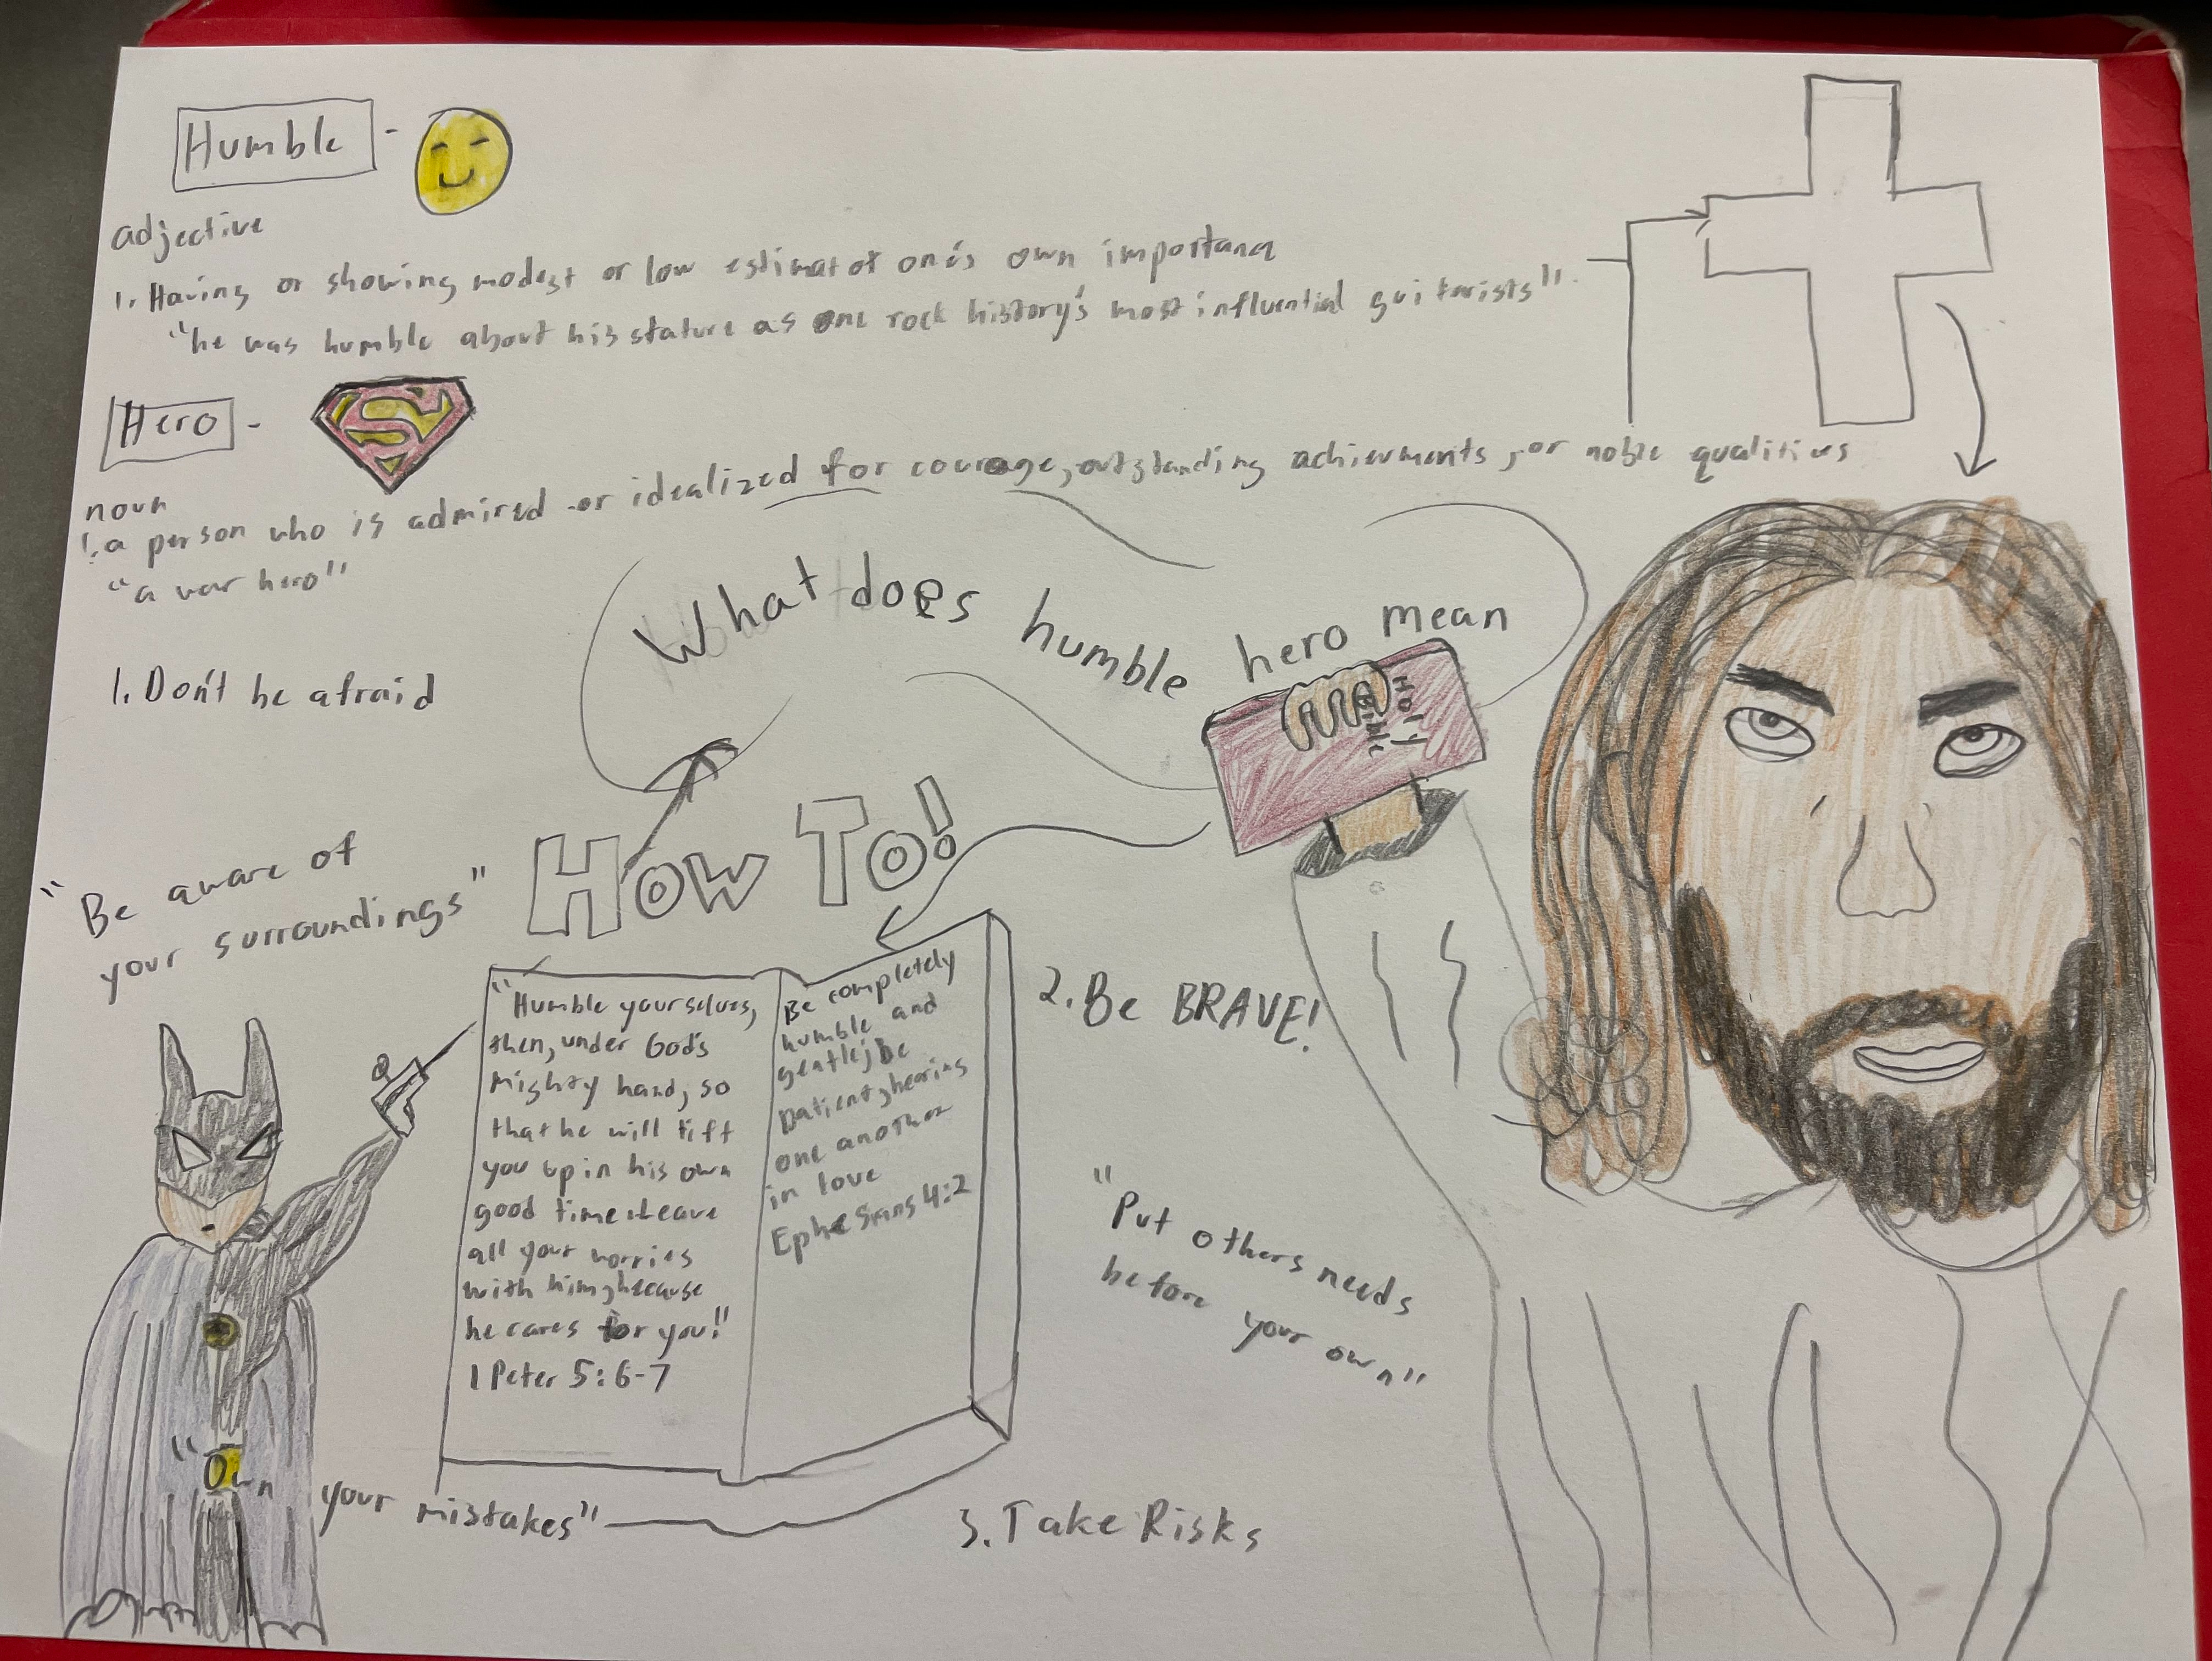 Humble -
adjective
1. Having or showing modest or low estimat of one's own importance
"he was humble about his stature as one rock history's most influential guitarists".
Hero -
S
noun
1. a person who is admired or idealized for courage, outstanding achievments, or noble qualities
"a war hero"
What does humble hero mean
Holy
Bible
1. Don't be afraid
How To!
"Be aware of
your surroundings"
"Humble yourselves,
then, under God's
Mighty hand, so
that he will lift
you up in his own
good time. Leave
all your worries
with him, because
he cares for you!"
1 Peter 5:6-7
Be completely
humble and
gentle; be
patient, bearing
one another
in love
Ephesians 4:2
2. Be BRAVE!
"Put others needs
before your own"
"Own your mistakes"
3. Take Risks